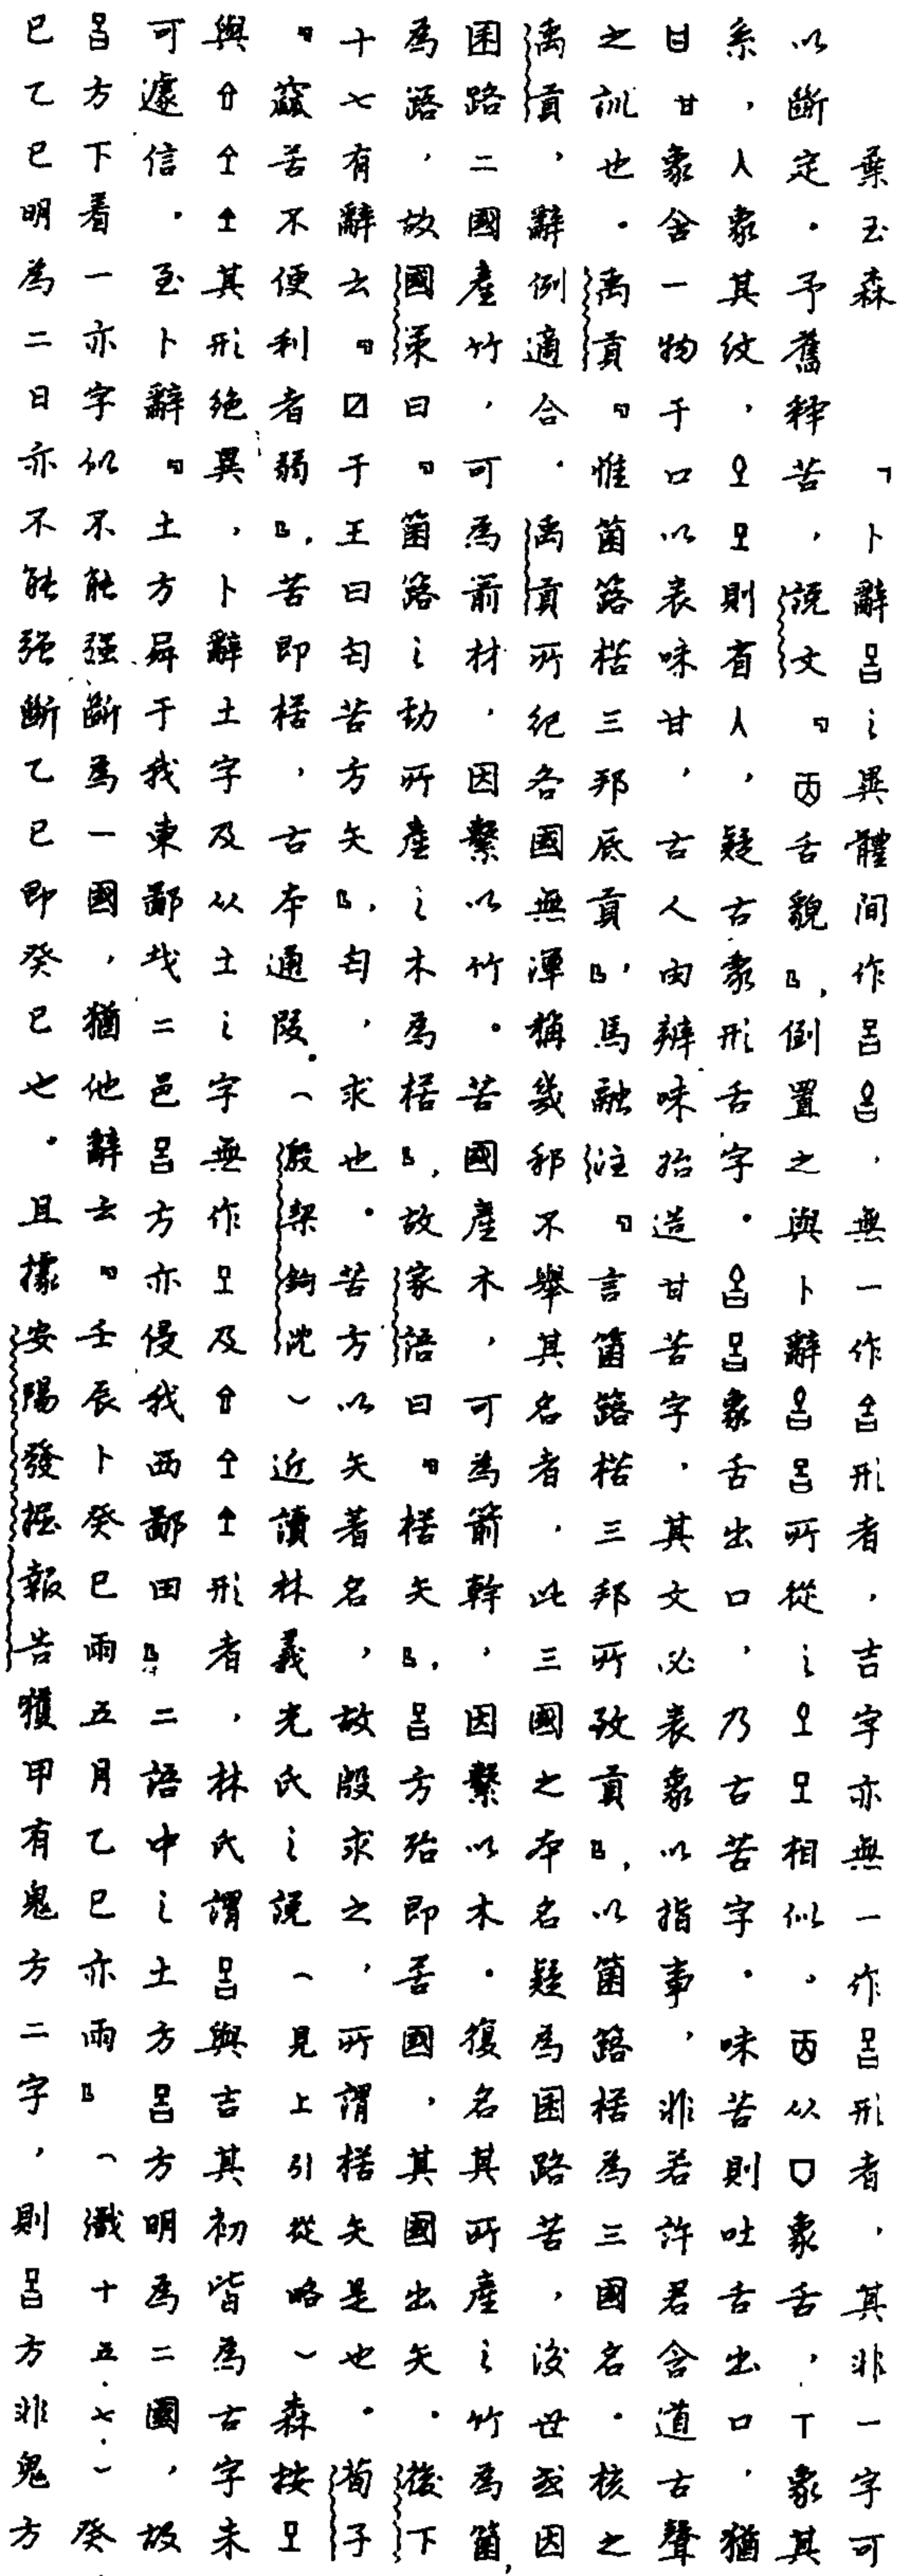 葉玉森 「卜辭之異體間作,無一作形者,吉字亦無一作形者,其非一字可
以斷定。予舊釋苦,說文『㐁舌貌』,倒置之與卜辭所從之相似。㐁从口象舌,丅象其
系,人象其紋,則省人,疑古象形舌字。象舌出口,乃古苦字。味苦則吐舌出口,猶
甘象含一物于口以表味甘,古人由辨味始造甘苦字,其文必表象以指事,非若許君含道古聲
之訓也。禹貢『惟箘簬楛三邦底貢』,馬融注『言箘簬楛三邦所致貢』,以箘簬楛為三國名。核之
禹貢,辭例適合。禹貢所紀各國無渾稱幾邦不舉其名者,此三國之本名疑為困路苦,後世或因
困路二國產竹,可為箭材,因繫以竹。苦國產木,可為箭幹,因繫以木。復名其所產之竹為箘,
為簬,故國策曰『箘簬之勁所產之木為楛』,故家語曰『楛矢』,方殆即苦國,其國出矢。後下
十七有辭云『〼于王曰匄苦方矢』,匄,求也。苦方以矢著名,故殷求之,所謂楛矢是也。荀子
『窳苦不便利者弱』,苦即楛,古本通叚。(殷契鉤沈)近讀林義光氏之說(見上引從略)森按
與其形絕異,卜辭土字及从土之字無作及形者,林氏謂與吉其初皆為古字未
可遽信。至卜辭『土方于我東鄙𢦏二邑方亦侵我西鄙田』二語中之土方方明為二國,故
方下着一亦字似不能強斷為一國,猶他辭云『壬辰卜癸巳雨五月乙巳亦雨』(鐵十五.七.)癸
巳乙巳明為二日亦不能強斷乙巳即癸巳也。且據安陽發掘報告獲甲有鬼方二字,則方非鬼方